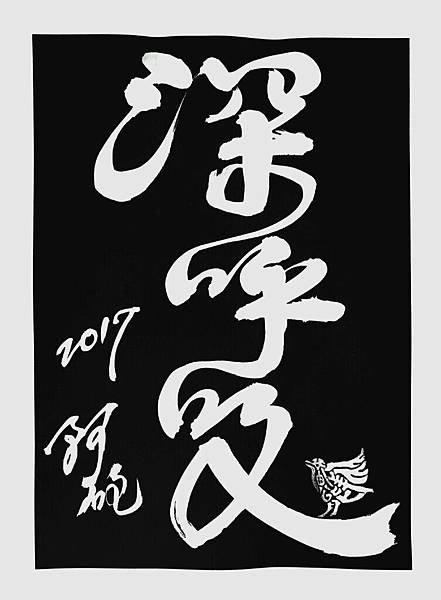 深呼吸
2017
阿